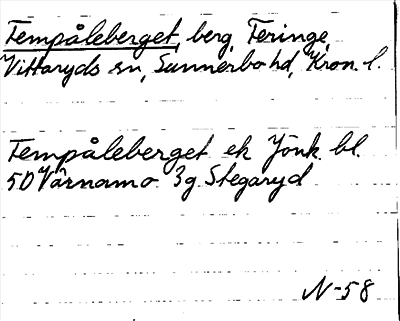 Tempåleberget, berg, Feringe,
Vittaryds sn, Sunnerbo hd, Kron. l.
Tempåleberget ek Jönk. bl.
5D Värnamo 3g Stegaryd
N-58